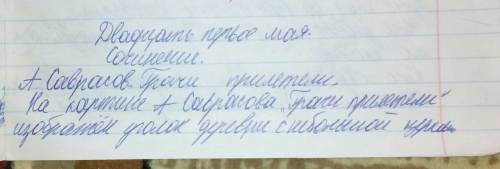 Двадцать первое мая.
Сочинение.
А. Саврасов. Грачи прилетели.
На картине А Саврасова „Грачи прилетели“
изображён уголок деревни с небольшой